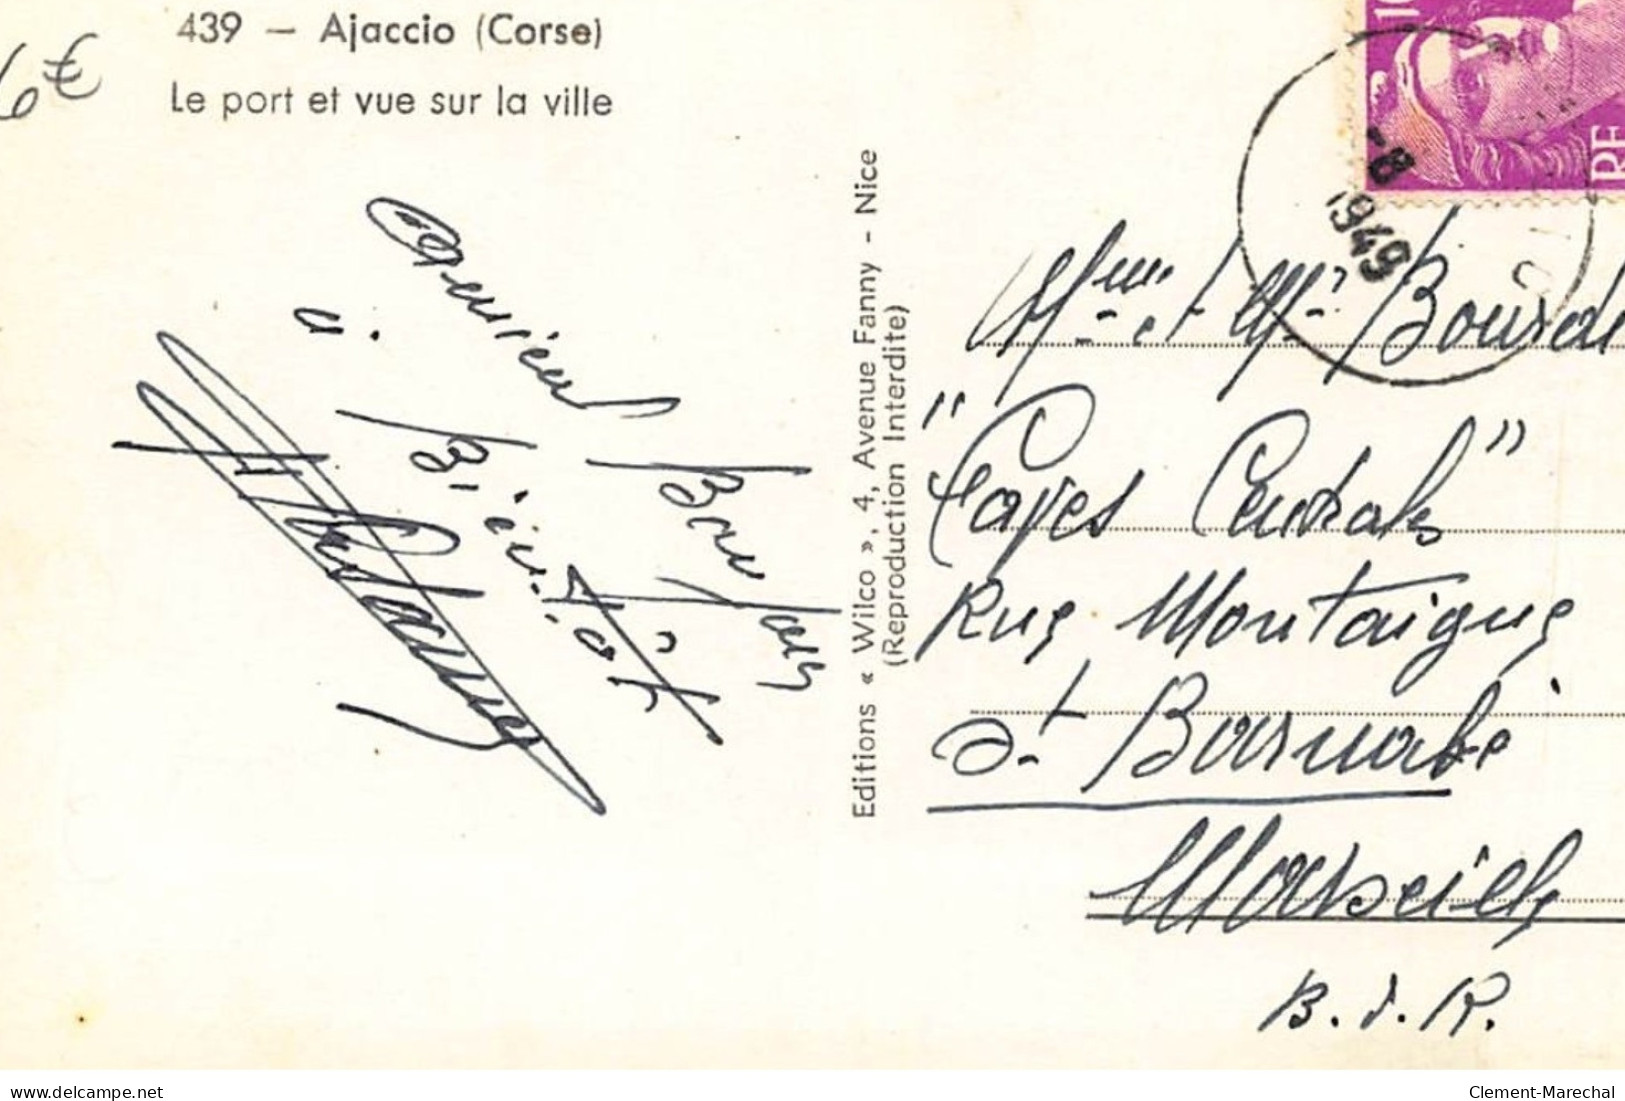 439 — Ajaccio (Corse)
Le port et vue sur la ville
6€
10
RF
-8
1949
Editions « Wilco », 4, Avenue Fanny - Nice
(Reproduction Interdite)
Bon
à
Bientôt
Mme et Mr
"Cayes Centrales"
Rue Montaigne
St Barnabé
Marseille
B.d.R.
www.delcampe.net
Clement-Marechal